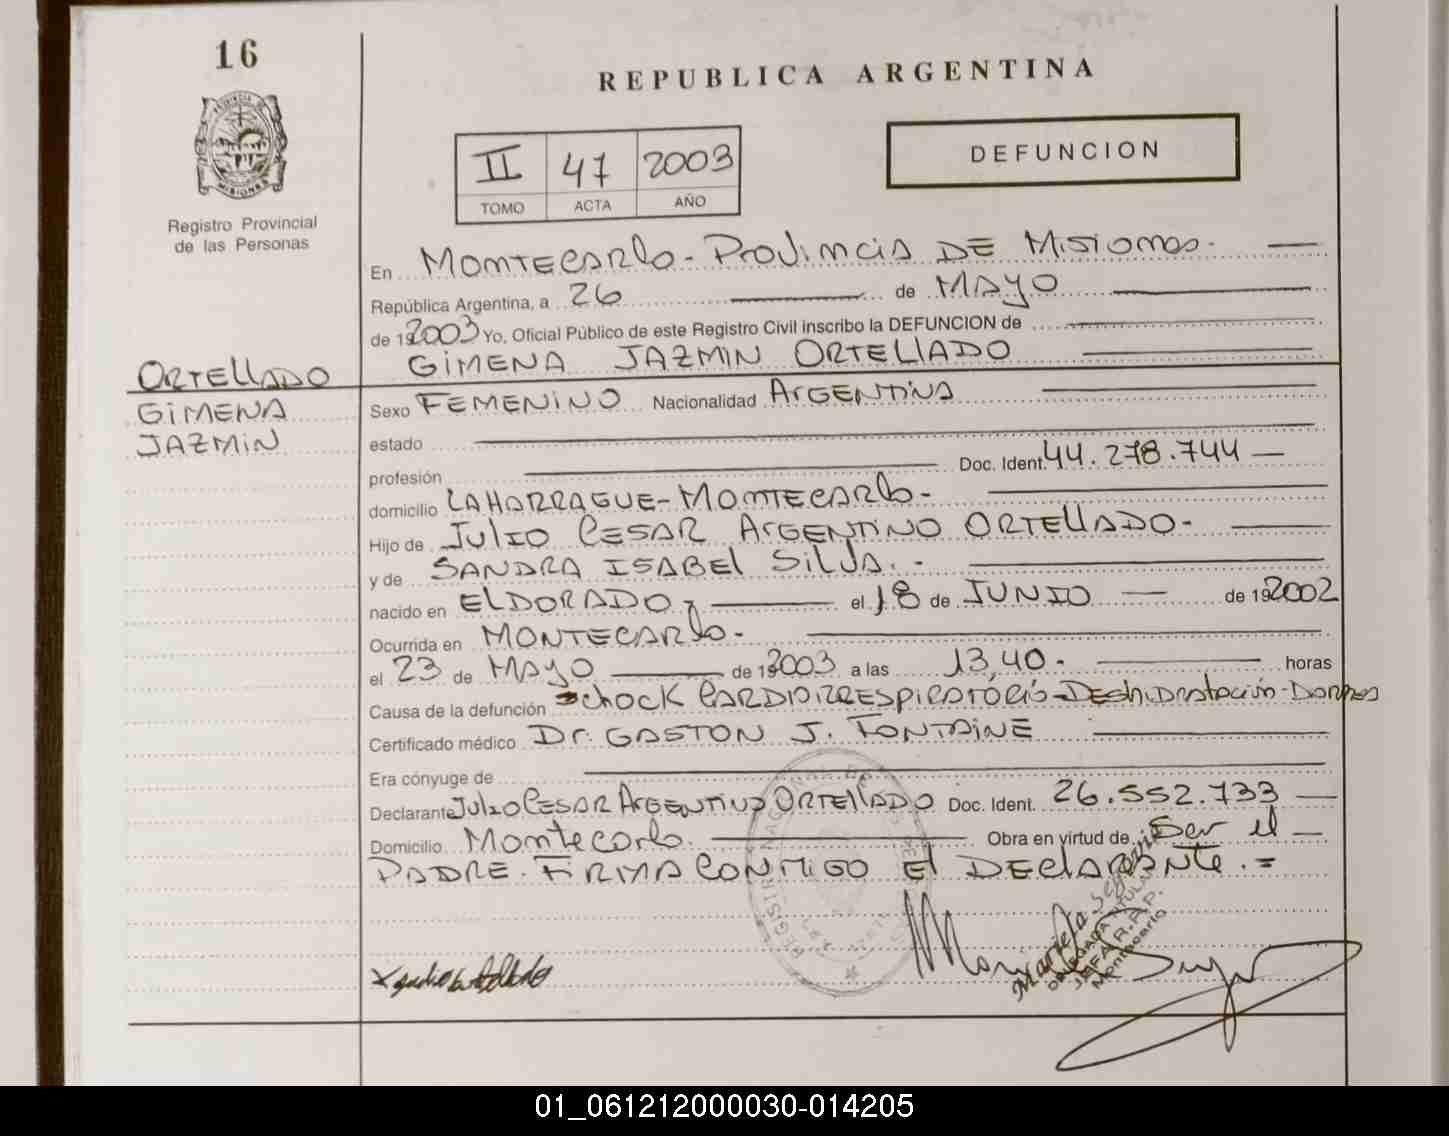 16
REPUBLICA ARGENTINA
II 47 2003
TOMO ACTA AÑO
DEFUNCION
Registro Provincial
de las Personas
En Montecarlo - Provincia DE Misiones.
República Argentina, a 26 de MAYO
de 19 2003 Yo, Oficial Público de este Registro Civil inscribo la DEFUNCION de
GIMENA JAZMIN ORTELLADO
ORTELLADO
GIMENA
JAZMIN
Sexo FEMENINO Nacionalidad ArgENTINA
estado
profesión Doc. Ident. 44.278.744
domicilio LAHARRAGUE - MONTECARlo -
Hijo de Julio CESAR ArGENTINO ORTELLADO -
y de SANDRA ISABEL SILVA. -
nacido en ELDORADO - el 18 de JUNIO de 19 2002
Ocurrida en MONTECARlo -
el 23 de MAYO de 19 2003 a las 13,40. - horas
Causa de la defunción Schock CARDIORRESpiRATORio - DEshidratación -
Certificado médico Dr. GASTON J. FONTAINE
Era cónyuge de
Declarante Julio CESAR ArGENTINO ORTEllADO Doc. Ident. 26.552.733
Domicilio Montecarlo. Obra en virtud de Ser el
PADRE. FIRMA CONMIGO El DEClARANTE. =
DELEGADA TITULAR
Montecarlo
01_061212000030-014205